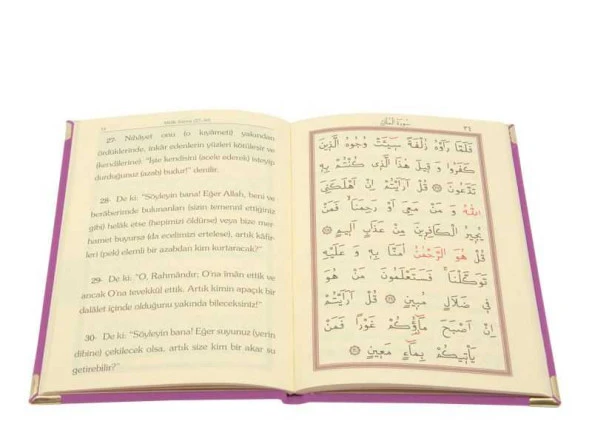 Mülk Sûresi (27-30)
27- Nihâyet onu (o kıyâmeti) yakından
gördüklerinde, inkâr edenlerin yüzleri kötüleşir ve
(kendilerine): "İşte kendisini (acele ederek) isteyip
durduğunuz (azab) budur!" denilir.
28- De ki: "Söyleyin bana! Eğer Allah, beni ve
berâberimde bulunanları (sizin temennî ettiğiniz
gibi) helâk etse (hepimizi öldürse) veya bize mer-
hamet buyursa (da ecelimizi ertelese), artık kâfir-
leri (pek) elemli bir azabdan kim kurtaracak?"
29- De ki: "O, Rahmândır; O'na îmân ettik ve
ancak O'na tevekkül ettik. Artık kimin apaçık bir
dalâlet içinde olduğunu yakında bileceksiniz!"
30- De ki: "Söyleyin bana! Eğer suyunuz (yerin
dibine) çekilecek olsa, artık size kim bir akar su
getirebilir?"
فَلَمَّا رَاَوْهُ زُلْفَةً سٖٓيـَٔتْ وُجُوهُ الَّذٖينَ
كَفَرُوا وَ قٖيلَ هٰذَا الَّذٖى كُنْتُمْ بِهٖ
تَدَّعُونَ ۞ قُلْ اَرَاَيْتُمْ اِنْ اَهْلَكَنِىَ
اللّٰهُ وَ مَنْ مَعِىَ اَوْ رَحِمَنَاۙ فَمَنْ
يُجٖيرُ الْكَافِرٖينَ مِنْ عَذَابٍ اَلٖيمٍ ۞
قُلْ هُوَ الرَّحْمٰنُ اٰمَنَّا بِهٖ وَ عَلَيْهِ
تَوَكَّلْنَاۚ فَسَتَعْلَمُونَ مَنْ هُوَ
فٖى ضَلَالٍ مُبٖينٍ ۞ قُلْ اَرَاَيْتُمْ
اِنْ اَصْبَحَ مَٓاؤُ۬كُمْ غَوْرًا فَمَنْ
يَأْتٖيكُمْ بِمَٓاءٍ مَعٖينٍ ۞